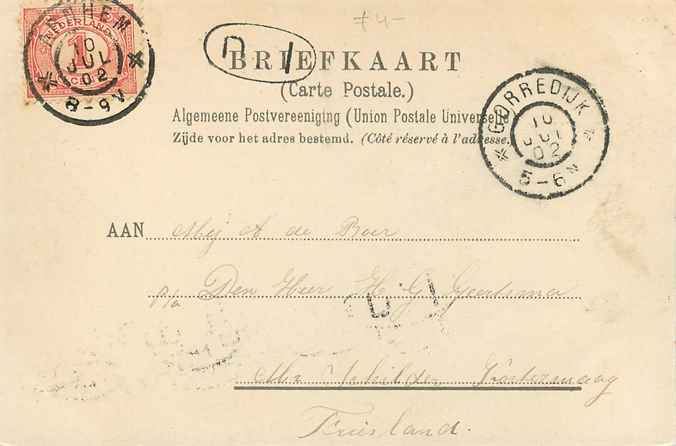 NEDERLAND
10
JUL
02
8-9V
BRIEFKAART
(Carte Postale.)
Algemeene Postvereeniging (Union Postale Universelle
Zijde voor het adres bestemd. (Côté réservé à l'adresse.
GORREDIJK
10
JUL
02
5-6N
AAN Mej A de Boer
p/a Den Heer H G Geertsma
Friesland.